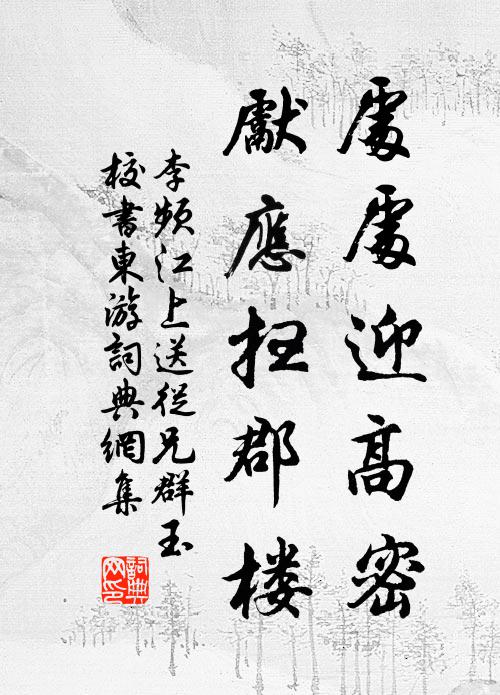 處處迎高密
獻應扫郡楼
李频江上送從兄群玉
校書東游詞典網集
詞典網印